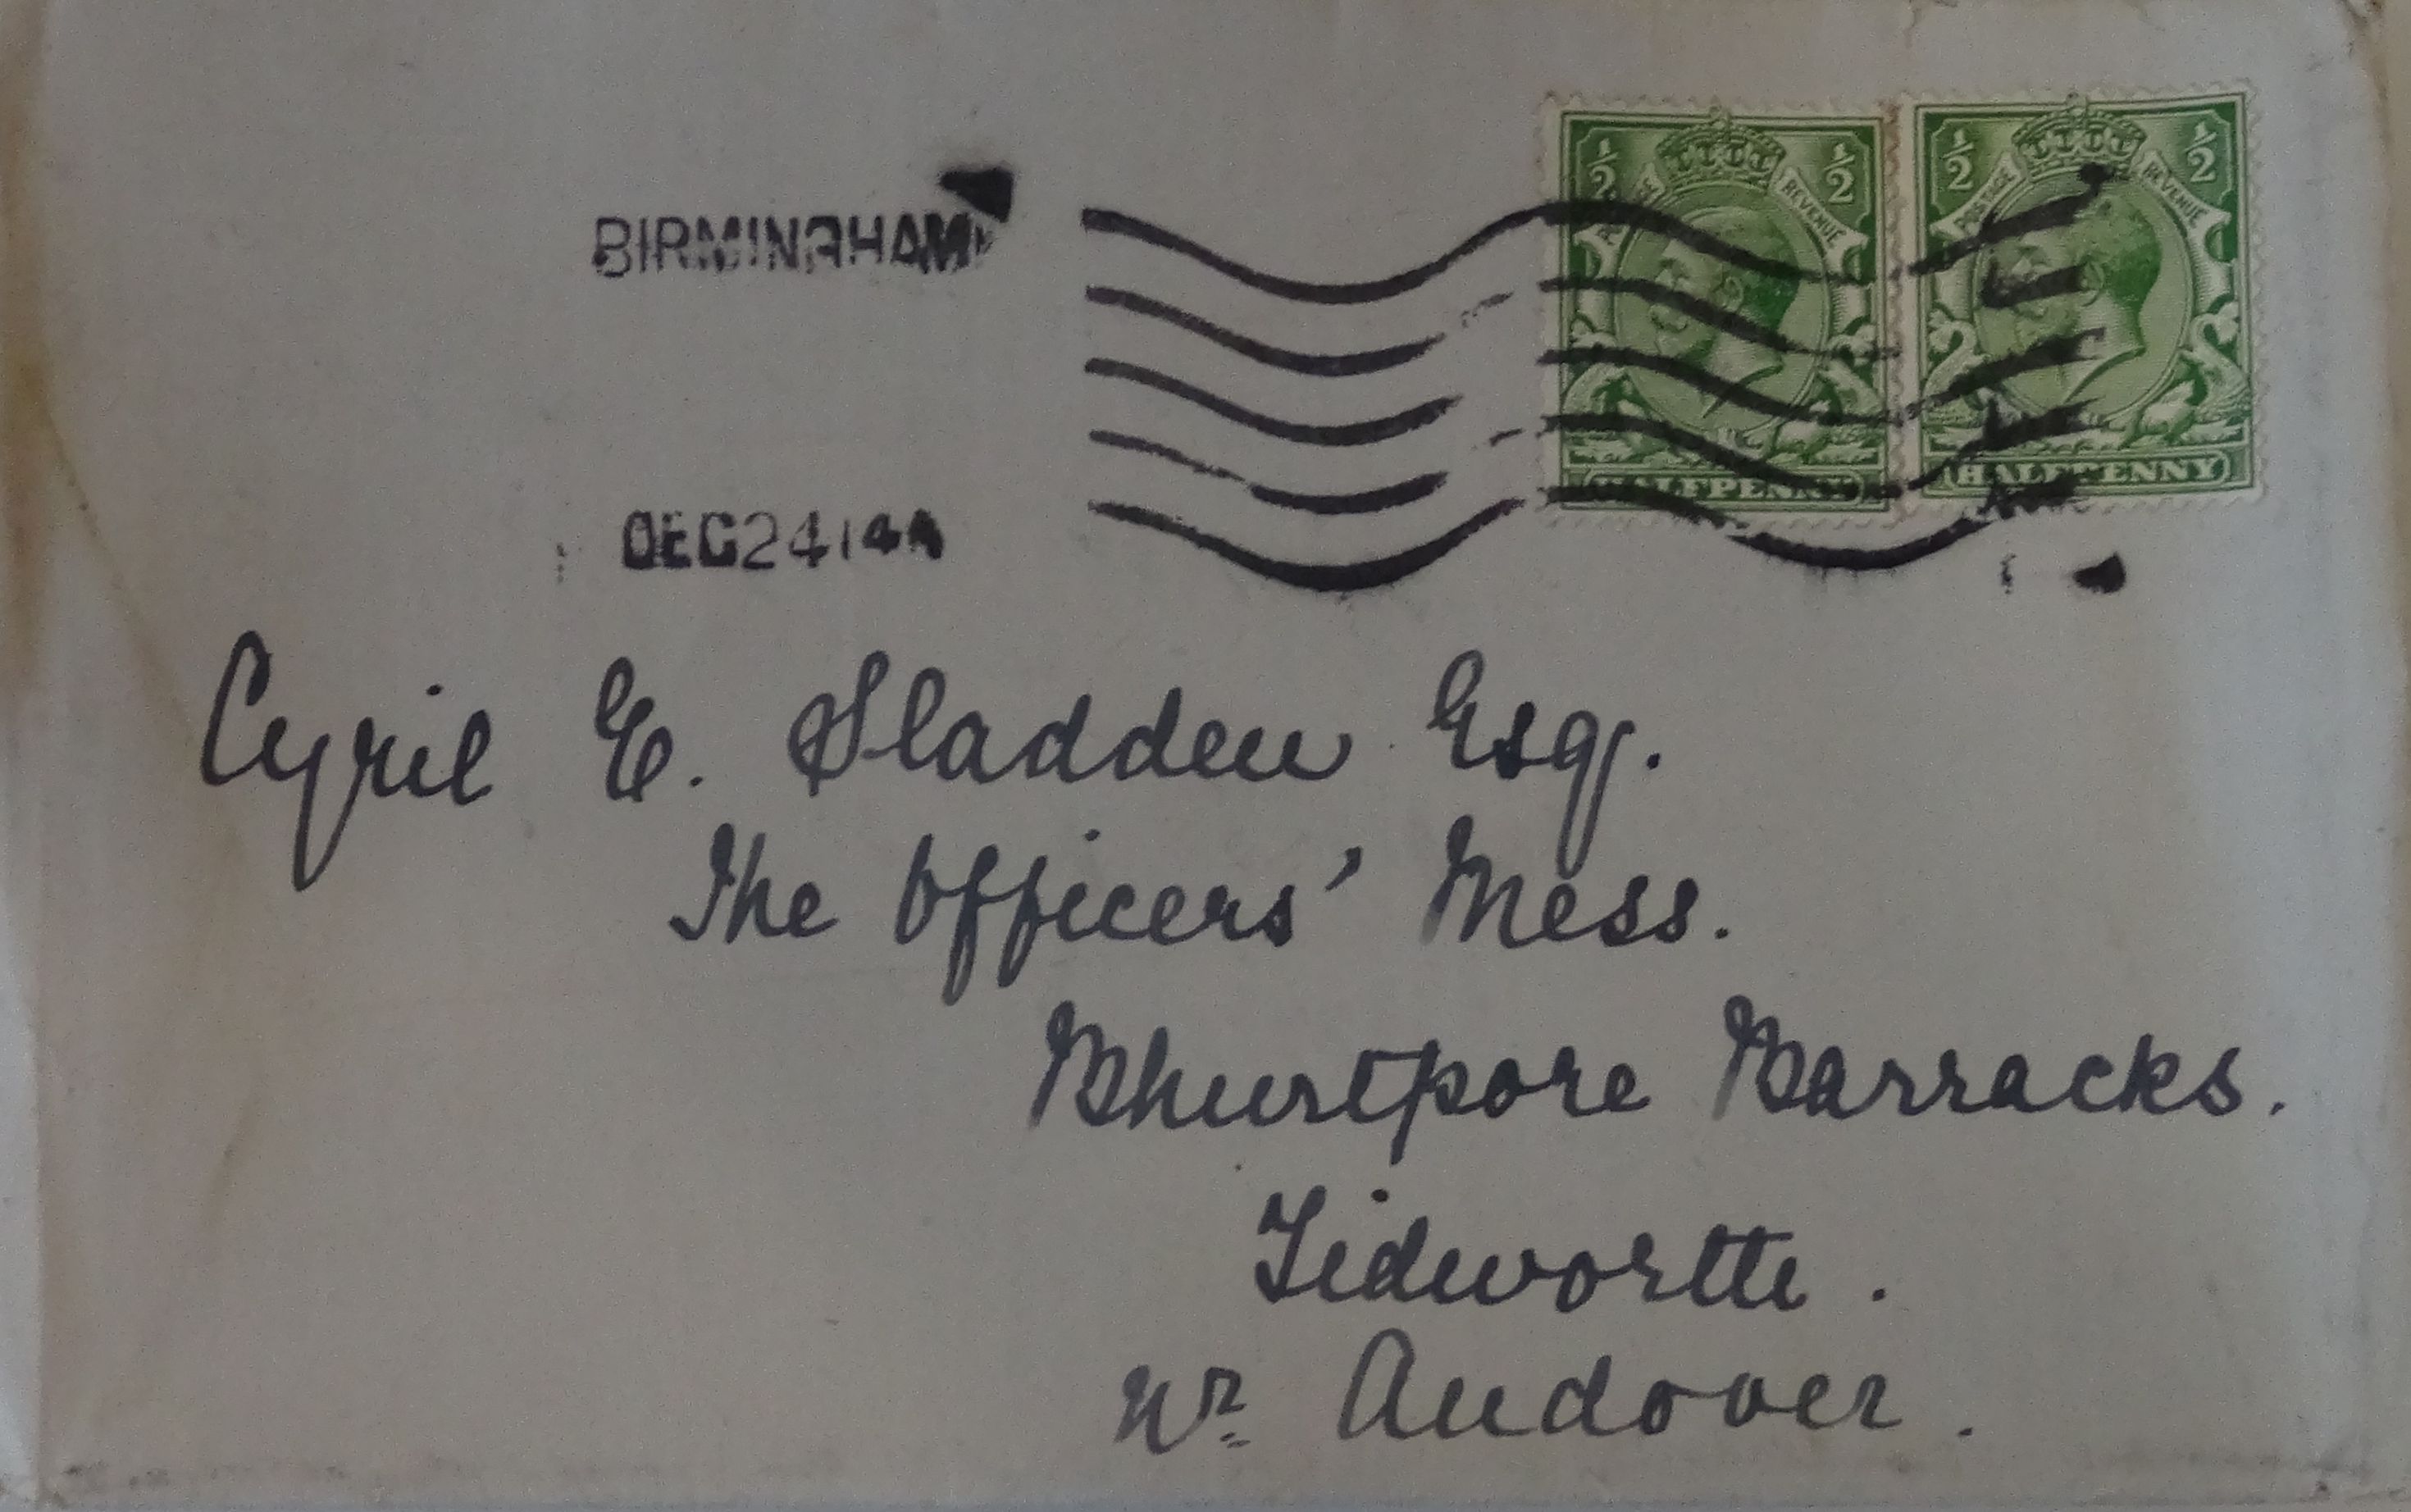 BIRMINGHAM
DEC 24 14
½ ½
REVENUE
HALFPENNY
½ ½
POSTAGE REVENUE
HALFPENNY
Cyril E. Sladden Esq.
The Officers' Mess.
Bhurtpore Barracks.
Tidworth.
Nr Andover.